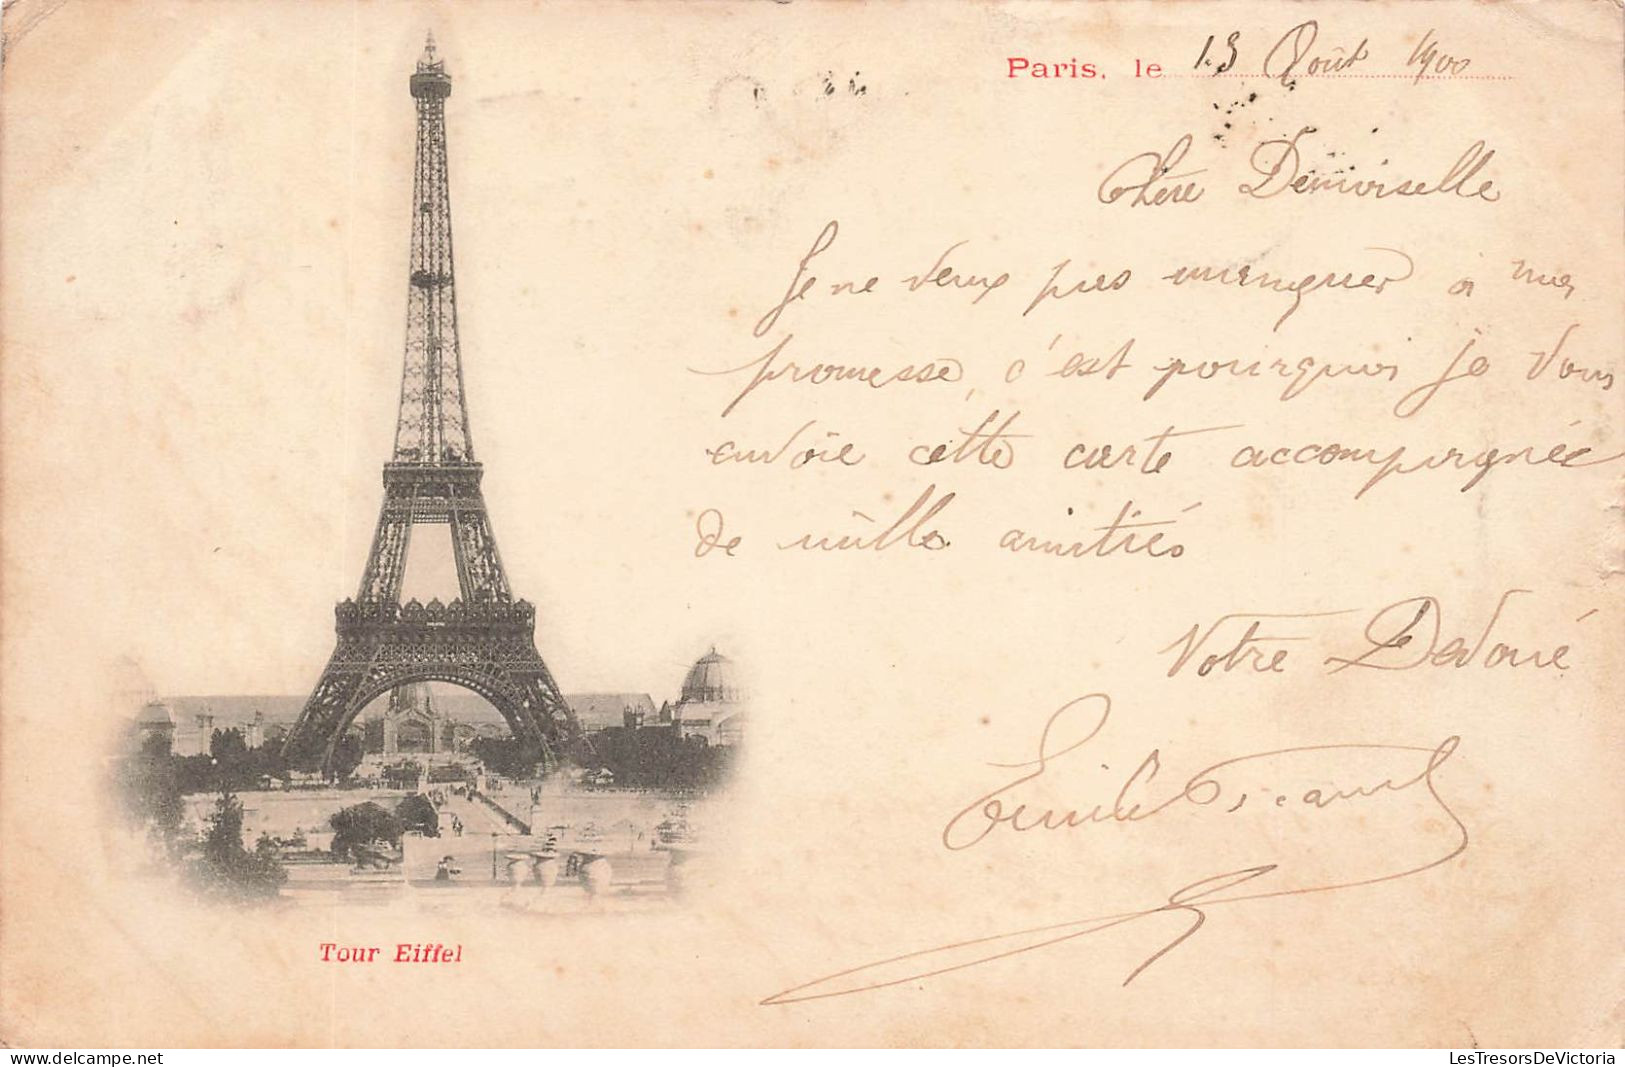 Paris, le 13 Août 1900
Chère Demoiselle
Je ne veux pas manquer à ma
promesse, c'est pourquoi je vous
envoie cette carte accompagnée
de mille amitiés
Votre Dévoué
Emile
Tour Eiffel
delcampe.net
LesTresorsDeVictoria